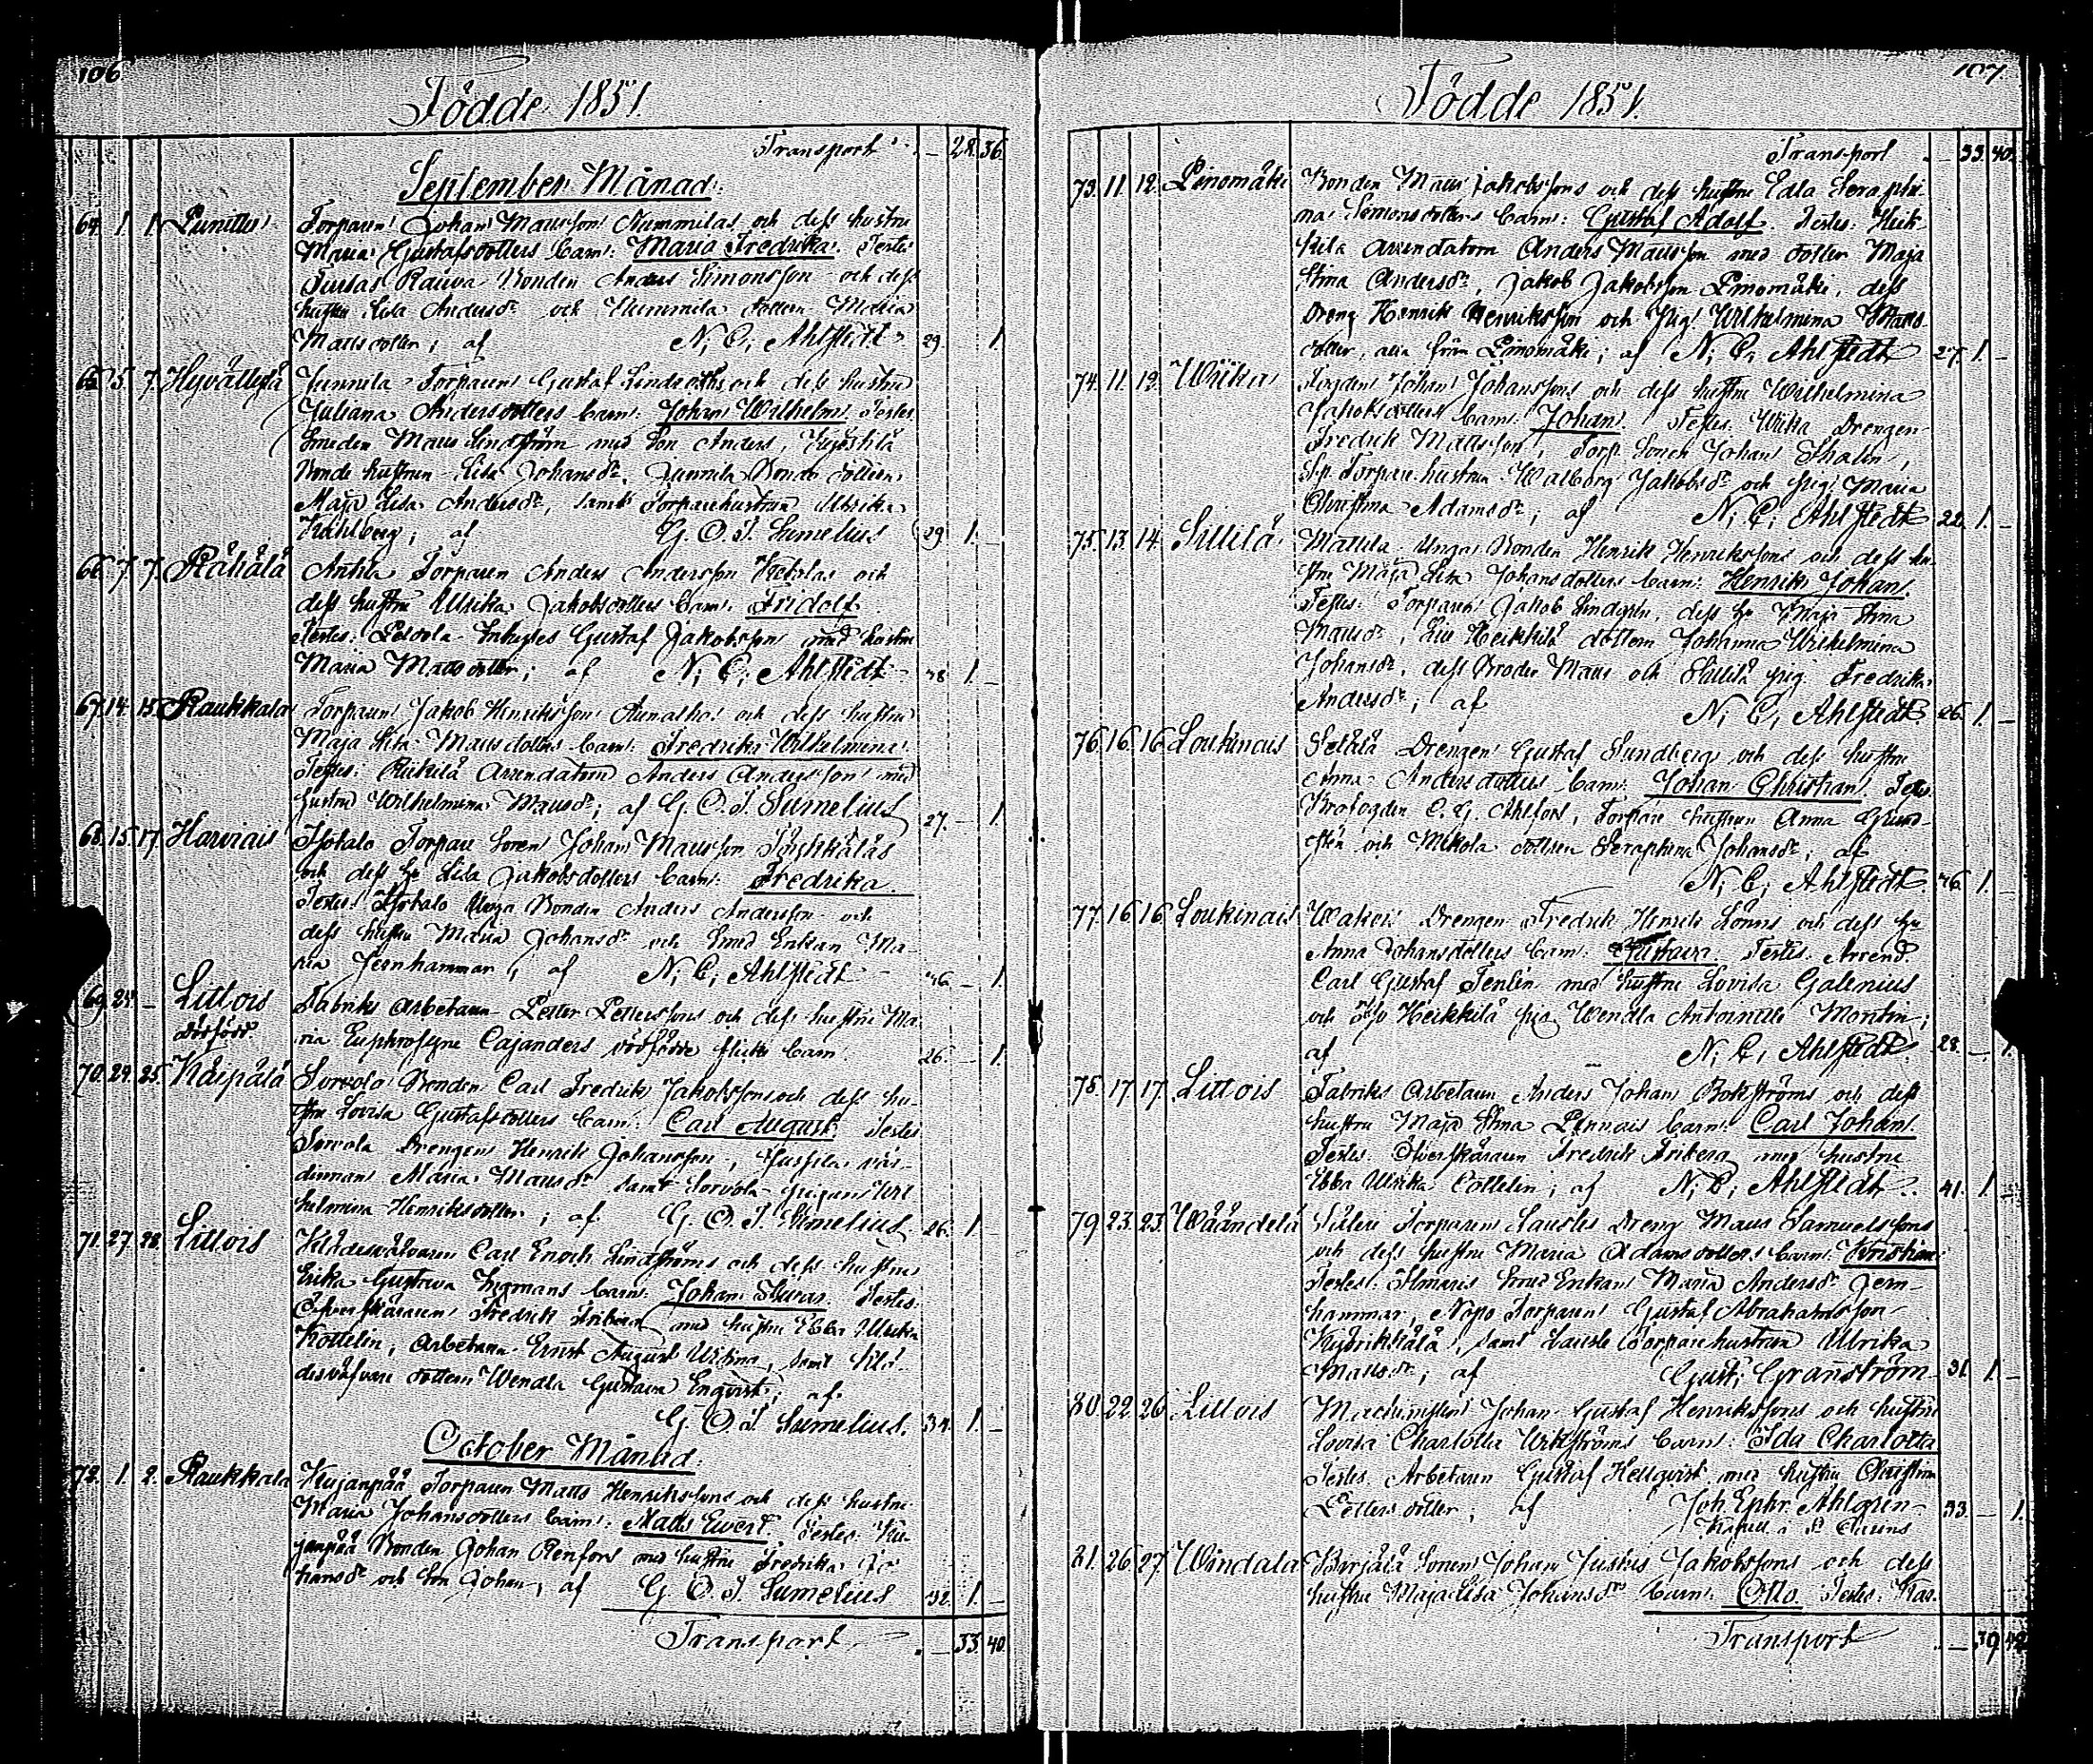 106
Födde 1851.
Transport . — 28. 36.
September Månad.
64. 1. 1. Punittu Torparen Johan Mattsson Nummilas och dess hustru
Maria Gustafsdotters barn: Maria Fredrika. Testes
Rauva Bonden Anders Simonsson och dess
hustru Lisa Andersdr och Nummila dottern Maria
Mattsdotter; af N. C. Ahlstedt 29. 1.
65. 5. 7. Hyvättylä Junnila Torparen Gustaf Lindroths och dess hustru
Juliana Andersdotters barn: Johan Wilhelm. Testes
Smeden Matts Lindström med Son Anders,
Bonde hustrun Lisa Johansdr. Junnila Bonde dottern
Maja Lisa Andersdr, samt Torparehustrun Ulrika
af G. O. I. Sumelius 29. 1. —
66. 7. 7. Rähälä Torparen Anders Andersson och
dess hustru Ulrika Jakobsdotters barn: Fridolf.
Testes: Inhyses Gustaf Jakobsson med hustru
Maria Mattsdotter; af N. C. Ahlstedt 38 1. —
67. 14. 15. Raukkala Torparen Jakob Henriksson och dess hustru
Maja Lisa Mattsdotters barn: Fredrika Wilhelmina.
Testes: Riikilä Arrendatorn Anders Andersson med
hustru Wilhelmina Mattsdr; af G. O. I. Sumelius 27. — 1.
68. 15. 17. Harvais Torpare Sonen Johan Mattsson
och dess hu Lisa Jakobsdotters barn: Fredrika.
Testes: Unga Bonden Anders Andersson och
dess hustru Maria Johansdr och Smed Enkan Ma-
ria Jernhammar; af N. C. Ahlstedt 46 — 1.
69. 24. — Littois Fabriks Arbetaren Petter Petterssons och dess hustru Ma-
dödfödd. ria Euphrosyne Cajanders dödfödde flicke barn. 26. — 1.
70. 24. 25. Käspälä Sorvola Bonden Carl Fredrik Jakobssons och dess hu-
stru Lovisa Gustafsdotters barn: Carl August. Testes
Sorvola Drengen Henrik Johansson,
Maria Mattsdr samt Sorvola pigan Wil-
helmina Henriksdotter; af G. O. I. Sumelius 26. 1. —
71. 27. 28. Littois Klädesväfvaren Carl Enoch Lindströms och dess hustru
Erika Gustava barn: Johan. Testes:
Öfverskäraren Fredrik Friberg med hustru Ebba Ulrika
Kottelin, Arbetaren Ernst August, samt Klä-
desväfvare dottern Wendla Gustava Enqvist; af
G. O. I. Sumelius. 34. 1. —
October Månad.
72. 1. 2. Raukkala Kujanpää Torparen Matts Henrikssons och dess hustru
Maria Johansdotters barn: Matts Evert. Testes: Ku-
janpää Bonden Johan Renfors med hustru Fredrika Jo-
hansdr och Son Johan, af G. O. I. Sumelius 32. 1. —
Transport . — 33. 40.
107.
Födde 1851.
Transport . — 33. 40.
73. 11. 12. Pinomäki Bonden Matts Jakobssons och dess hustru Edla Seraphi-
na Simonsdotters barn: Gustaf Adolf. Testes: Heik-
kilä Arrendatorn Anders Mattsson med dotter Maja
Stina Andersdr, Jakob Jakobsson Pinomäki, dess
Dreng Henrik Henriksson och Pig. Wilhelmina Matts-
dotter, alla från Pinomäki; af N. C. Ahlstedt 27. 1. —
74. 11. 13. Wiika Fogden Johan Johanssons och dess hustru Wilhelmina
Jakobsdotters barn: Johan. Testes: Wiika Drengen
Fredrik Mattsson, Torp. Sonen Johan,
Torpare hustrun Walborg Jakobsdr och pig. Maria
Christina Adamsdr; af N. C. Ahlstedt 22. 1. —
75. 13. 14. Sillilä Mattila Unga Bonden Henrik Henrikssons och dess hu-
stru Maja Lisa Johansdotters barn: Henrik Johan.
Testes: Torparen Jakob Lindgren, dess hu Maja Stina
Mattsdr, Heikkilä dottern Johanna Wilhelmina
Johansdr, dess Broder Matts och Sillilä pig. Fredrika
Andersdr; af N. C. Ahlstedt 26. 1. —
76. 16. 16. Loukinais Setälä Drengen Gustaf Sundbergs och dess hustru
Anna Andersdotters barn: Johan Christian. Testes:
C. G. Ahlfors, Torpare hustrun Anna Grund-
och Mikola dottren Seraphina Johansdr; af
N. C. Ahlstedt 46. 1. —
77. 16. 16. Loukinais Drengen Fredrik Henrik Lönns och dess hu
Anna Johansdotters barn: Gustava. Testes: Arrend.
Carl Gustaf Fenlin med hustru Lovisa Galenius
och Heikkilä pig. Wendla Antoinette Montin;
af N. C. Ahlstedt 28. — 1.
78. 17. 17. Littois Fabriks Arbetaren Anders Johan Bokströms och dess
hustru Maja Stina barn: Carl Johan.
Testes: Öfverskäraren Fredrik Friberg med hustru
Ebba Ulrika Cottelin; af N. C. Ahlstedt 41. 1. —
79. 23. 23. Wääntelä Torparen Dreng Matts Samuelssons
och dess hustru Maria Adamsdotters barn: Kristian.
Testes: Ilmaris Smed Enkan Maria Andersdr Jern-
hammar, Torparen Gustaf Abrahamsson
samt Torparehustrun Ulrika
Mattsdr; af Gust. Granström 31. 1. —
80. 22. 26. Littois Machinisten Johan Gustaf Henrikssons och hustru
Lovisa Charlotta Wikströms barn: Ida Charlotta.
Testes: Arbetaren Gustaf Hellqvist med hustru Christina
Pettersdotter; af Joh. Ephr. Ahlgren 33. — 1.
81. 26. 27. Windala Sonen Johan Justus Jakobssons och dess
hustru Maja Lisa Johansdrs barn: Otto. Testes: Kas-
Transport . — 39. 42.